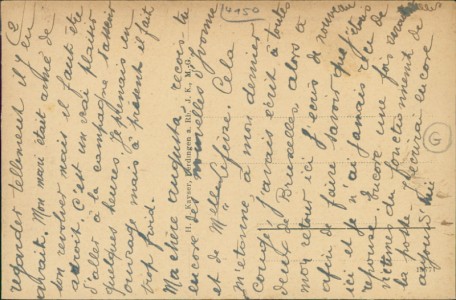 2
14950
regarder tellement il y en
avait. Mon mari était armé de
son revolver mais il faut être
adroit. C'est un vrai plaisir
d'aller à la campagne passer
quelques heures. Je prenais un
ouvrage mais à présent il fait
trop froid.
Ma chère Augusta, reçois-tu
encore des nouvelles d'Yvonne
et de Melle Cela
m'étonne, à mon dernier
congé j'avais écrit à toutes
deux de Bruxelles alors à
mon retour ici j'écris de nouveau
afin de faire savoir que j'étais
ici et je n'ai jamais reçu de
réponse. Encore une fois
victimes du fonctionnement de
la poste. J'écrirai encore
aujourd'hui
H. Kayser, a. Rh. J. E., M. G.
G